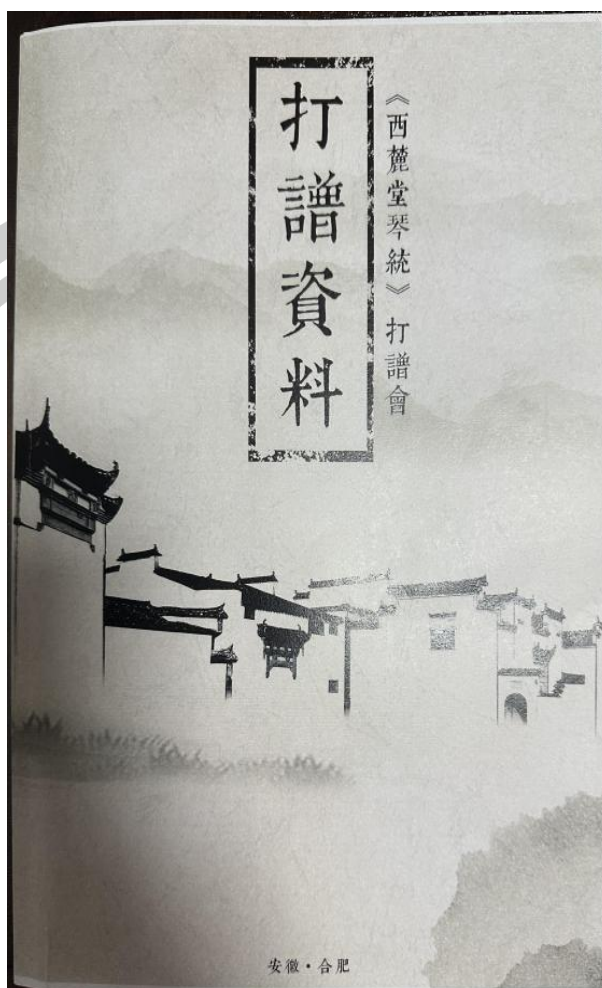 《西麓堂琴統》打譜會
打譜資料
安徽·合肥